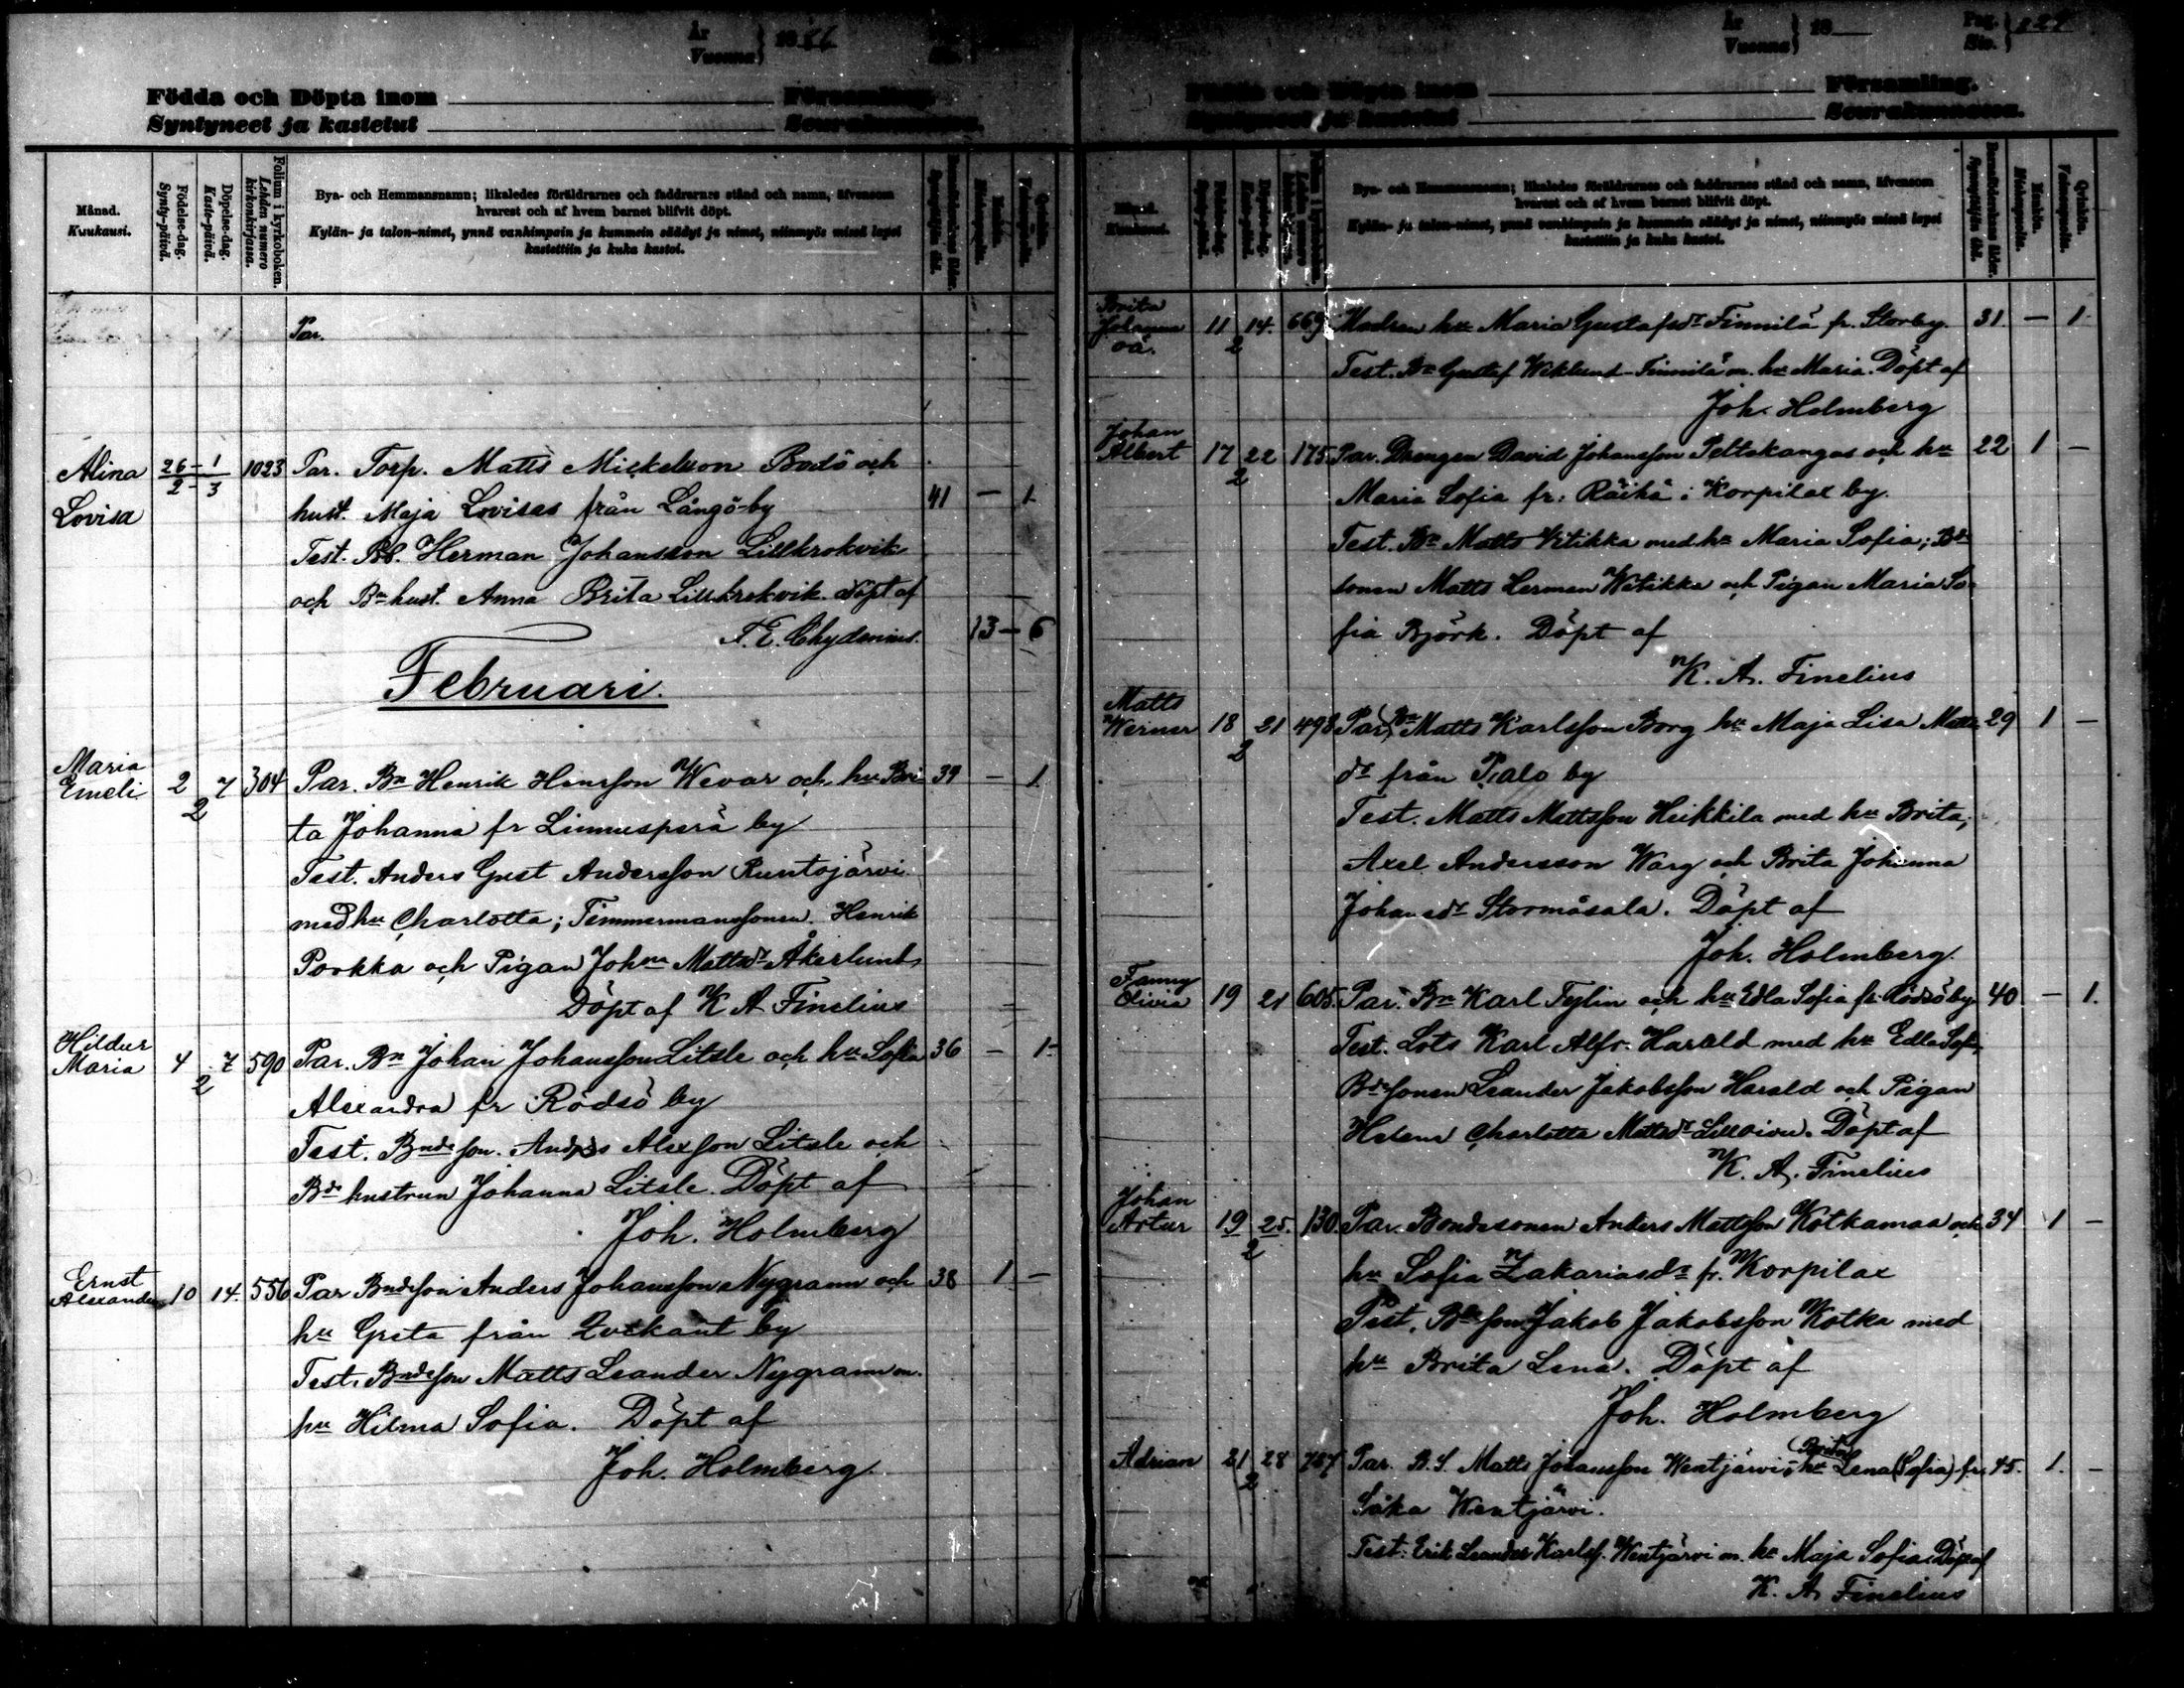 År
Vuonna } 1886
Födda och Döpta inom Församling.
Syntyneet ja kastetut Seurakunnassa.
Månad.
Kuukausi.
Födelse-dag.
Synty-päivä.
Döpelse-dag.
Kaste-päivä.
Folium i kyrkoboken.
Lehden numero kirkonkirjassa.
Bya- och Hemmansnamn; likaledes föräldrarnes och faddrarnes stånd och namn, äfvensom
hvarest och af hvem barnet blifvit döpt.
Kylän- ja talon-nimet, ynnä vanhimpain ja kummein säädyt ja nimet, niinmyös missä lapsi
kastettiin ja kuka kastoi.
Par.
Alina 26-1 1023 Par. Torp. Matts Mickelsson Bodö och
Lovisa 2-3 hust. Maja Lovisas från Långö-by 41 — 1
Test. Bd. Herman Johansson Lillkrokvik
och Bn hust. Anna Brita Lillkrokvik döpt af
F. E. Chydenius. 13 — 6
Februari.
Maria
Emeli 2 7 304 Par. Bn Henrik Henrsson Wevar och hu Bri- 39 — 1
2
ta Johanna fr Linnusperä by
Test. Anders Gust Andersson Runtojärvi
med hu Charlotta; Timmermanssonen Henrik
Porkka och Pigan Johna Mattsdr Åkerlund
Döpt af K A Finelius
Hildur
Maria 4 7 590 Par. Bn Johan Johansson Litsle och hu Sofia 36 — 1
2
Alexandra fr Rödsö by
Test. Bndeson. Anders Alexsson Litsle och
Bde hustrun Johanna Litsle. Döpt af
Joh. Holmberg
Ernst
Alexander 10 14. 556 Par Bndeson Anders Johansson Nygrann och 38 1 —
hu Greta från Qvikant by
Test. Bndeson Matts Leander Nygrann m.
hu Hilma Sofia. Döpt af
Joh. Holmberg.
År
Vuonna } 18
Pag.
Siv. }
Födda och Döpta inom Församling.
Syntyneet ja kastetut Seurakunnassa.
Månad.
Kuukausi.
Bya- och Hemmansnamn; likaledes föräldrarnes och faddrarnes stånd och namn, äfvensom
hvarest och af hvem barnet blifvit döpt.
Kylän- ja talon-nimet, ynnä vanhimpain ja kummein säädyt ja nimet, niinmyös missä lapsi
kastettiin ja kuka kastoi.
Mankön.
Miehenpuolta.
Qvinkön.
Vaimonpuolta.
Brita
Johanna 11 14. 669 Modren hu Maria Gustafsdr Finnilä fr. Storby. 31. — 1
oä. 2
Test. Bn Gustaf Wiklund-Finnilä m. hu Maria. Döpt af
Joh. Holmberg
Johan
Albert 17 22 175 Par. Drengen David Johansson Peltokangas och hu 22 1 —
2
Maria Sofia fr: Räihä i Korpilax by.
Test. Bn Matts Vitikka med hu Maria Sofia; Bde
sonen Matts Herman Witikka och Pigan Maria So-
fia Björk. Döpt af
K. A. Finelius
Matts
Werner 18 21 498 Par Bn Matts Karlsson Borg hu Maja Lisa Matts 29 1 —
2
dr från Palo by
Test. Matts Mattsson Heikkila med hu Brita;
Axel Andersson Warg och Brita Johanna
Johansdr Stormåsala. Döpt af
Joh. Holmberg.
Fanny
Olivia 19 21 605. Par. Bn Karl Fejlin och hu Edla Sofia fr. Rödsöby 40 — 1.
Test. Lots Karl Alfr. Harald med hu Edla Sof.
Bdesonen Leander Jakobsson Harald och Pigan
Helena Charlotta Mattsdr Lilloivu. Döpt af
K. A. Finelius
Johan
Artur 19 25. 130. Par. Bondesonen Anders Mattsson Kotkamaa och 34 1 —
2
hu Sofia Zakariasdr fr. Korpilax
Test. Bdeson Jakob Jakobsson Kotka med
hu Brita Lena. Döpt af
Joh. Holmberg
Adrian 21 28 757 Par. B.S. Matts Johansson Wentjärvi, hu Brita Lena (Sofia) fr. 45. 1. —
2
Såka Wentjärvi.
Test: Erik Leander Karlsf. Wentjärvi m. hu Maja Sofia. Döpt af
K. A. Finelius